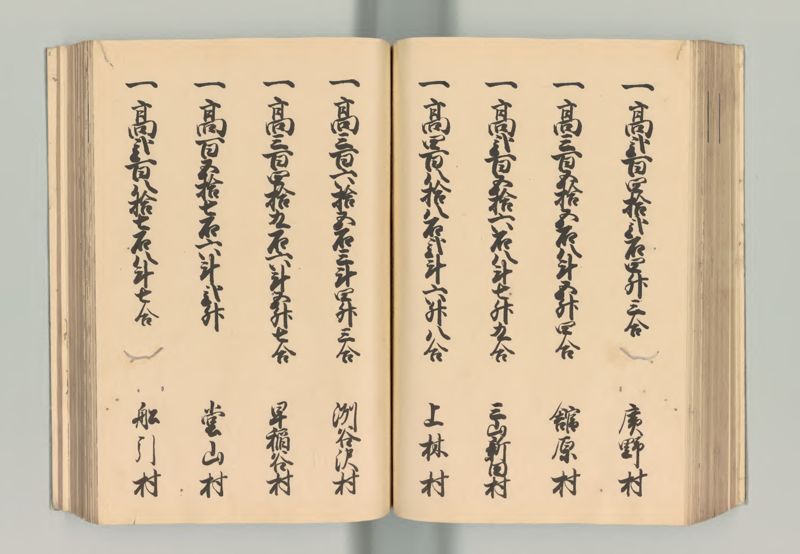 一高弐百四拾弐石四升三合 廣野村
一高三百五拾五石八斗五升四合 舘原村
一高弐百五拾六石八斗七升九合 三山新田村
一高四百八拾八石弐斗六升八合 上林村
一高三百六拾五石三斗四升三合 渕谷沢村
一高三百四拾九石六斗五升七合 早稲谷村
一高百五拾七石六斗弐升 堂山村
一高弐百八拾七石八斗七合 船引村